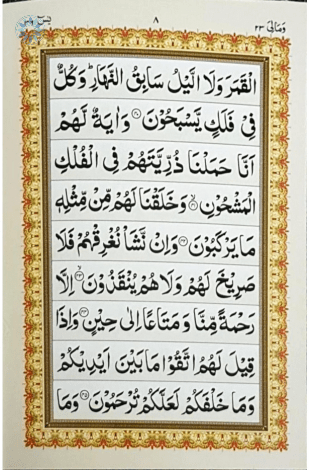 يٰسٓ ٣٦ ٨ وَمَالِيَ ٢٣
الْقَمَرَ وَلَا الَّيْلُ سَابِقُ النَّهَارِ ؕ وَكُلٌّ
فِيْ فَلَكٍ يَّسْبَحُوْنَ ۝۴۰ وَاٰيَةٌ لَّهُمْ
اَنَّا حَمَلْنَا ذُرِّيَّتَهُمْ فِي الْفُلْكِ
الْمَشْحُوْنِ ۝۴۱ وَخَلَقْنَا لَهُمْ مِّنْ مِّثْلِهٖ
مَا يَرْكَبُوْنَ ۝۴۲ وَاِنْ نَّشَاْ نُغْرِقْهُمْ فَلَا
صَرِيْخَ لَهُمْ وَلَا هُمْ يُنْقَذُوْنَ ۝۴۳ اِلَّا
رَحْمَةً مِّنَّا وَمَتَاعًا اِلٰى حِيْنٍ ۝۴۴ وَاِذَا
قِيْلَ لَهُمُ اتَّقُوْا مَا بَيْنَ اَيْدِيْكُمْ
وَمَا خَلْفَكُمْ لَعَلَّكُمْ تُرْحَمُوْنَ ۝۴۵ وَمَا